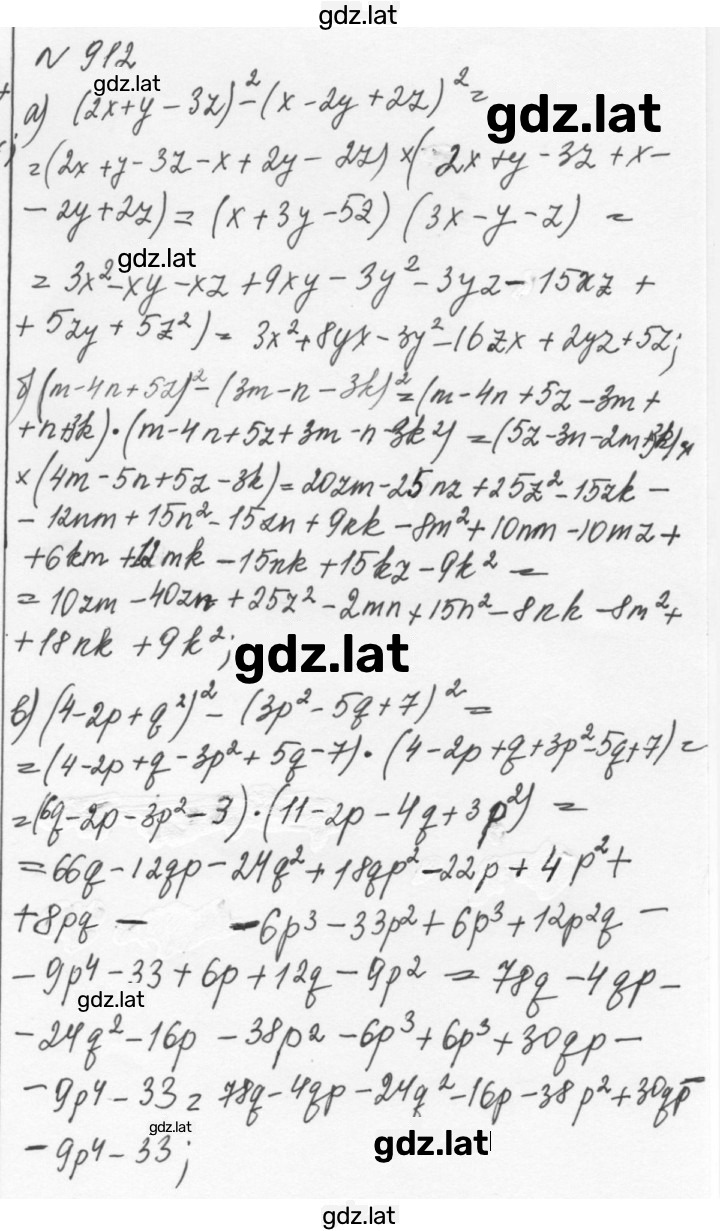 gdz.lat
N 912
gdz.lat
а) (2x+y-3z)²-(x-2y+2z)²=
gdz.lat
=(2x+y-3z-x+2y-2z)×(2x+y-3z+x-
-2y+2z)=(x+3y-5z)(3x-y-z)=
gdz.lat
=3x²-xy-xz+9xy-3y²-3yz-15xz+
+5zy+5z²)=3x²+8yx-3y²-16zx+2yz+5z;
б)(m-4n+5z)²-(3m-n-3k)²=(m-4n+5z-3m+
+n+3k)·(m-4n+5z+3m-n-3k²)=(5z-3n-2m+3k)×
×(4m-5n+5z-3k)=20zm-25nz+25z²-15zk-
-12nm+15n²-15zn+9nk-8m²+10nm-10mz+
+6km+12mk-15nk+15kz-9k²=
=10zm-40zn+25z²-2mn+15n²-8nk-8m²+
+18nk+9k²;
gdz.lat
в)(4-2p+q²)²-(3p²-5q+7)²=
=(4-2p+q-3p²+5q-7)·(4-2p+q+3p²-5q+7)=
=(6q-2p-3p²-3)·(11-2p-4q+3p²)=
=66q-12qp-24q²+18qp²-22p+4p²+
+8pq- -6p³-33p²+6p³+12p²q-
-9p⁴-33+6p+12q-9p²=78q-4qp-
gdz.lat
-24q²-16p-38p²-6p³+6p³+30qp-
-9p⁴-33=78q-4qp-24q²-16p-38p²+30qp-
gdz.lat
-9p⁴-33;
gdz.lat
gdz.lat